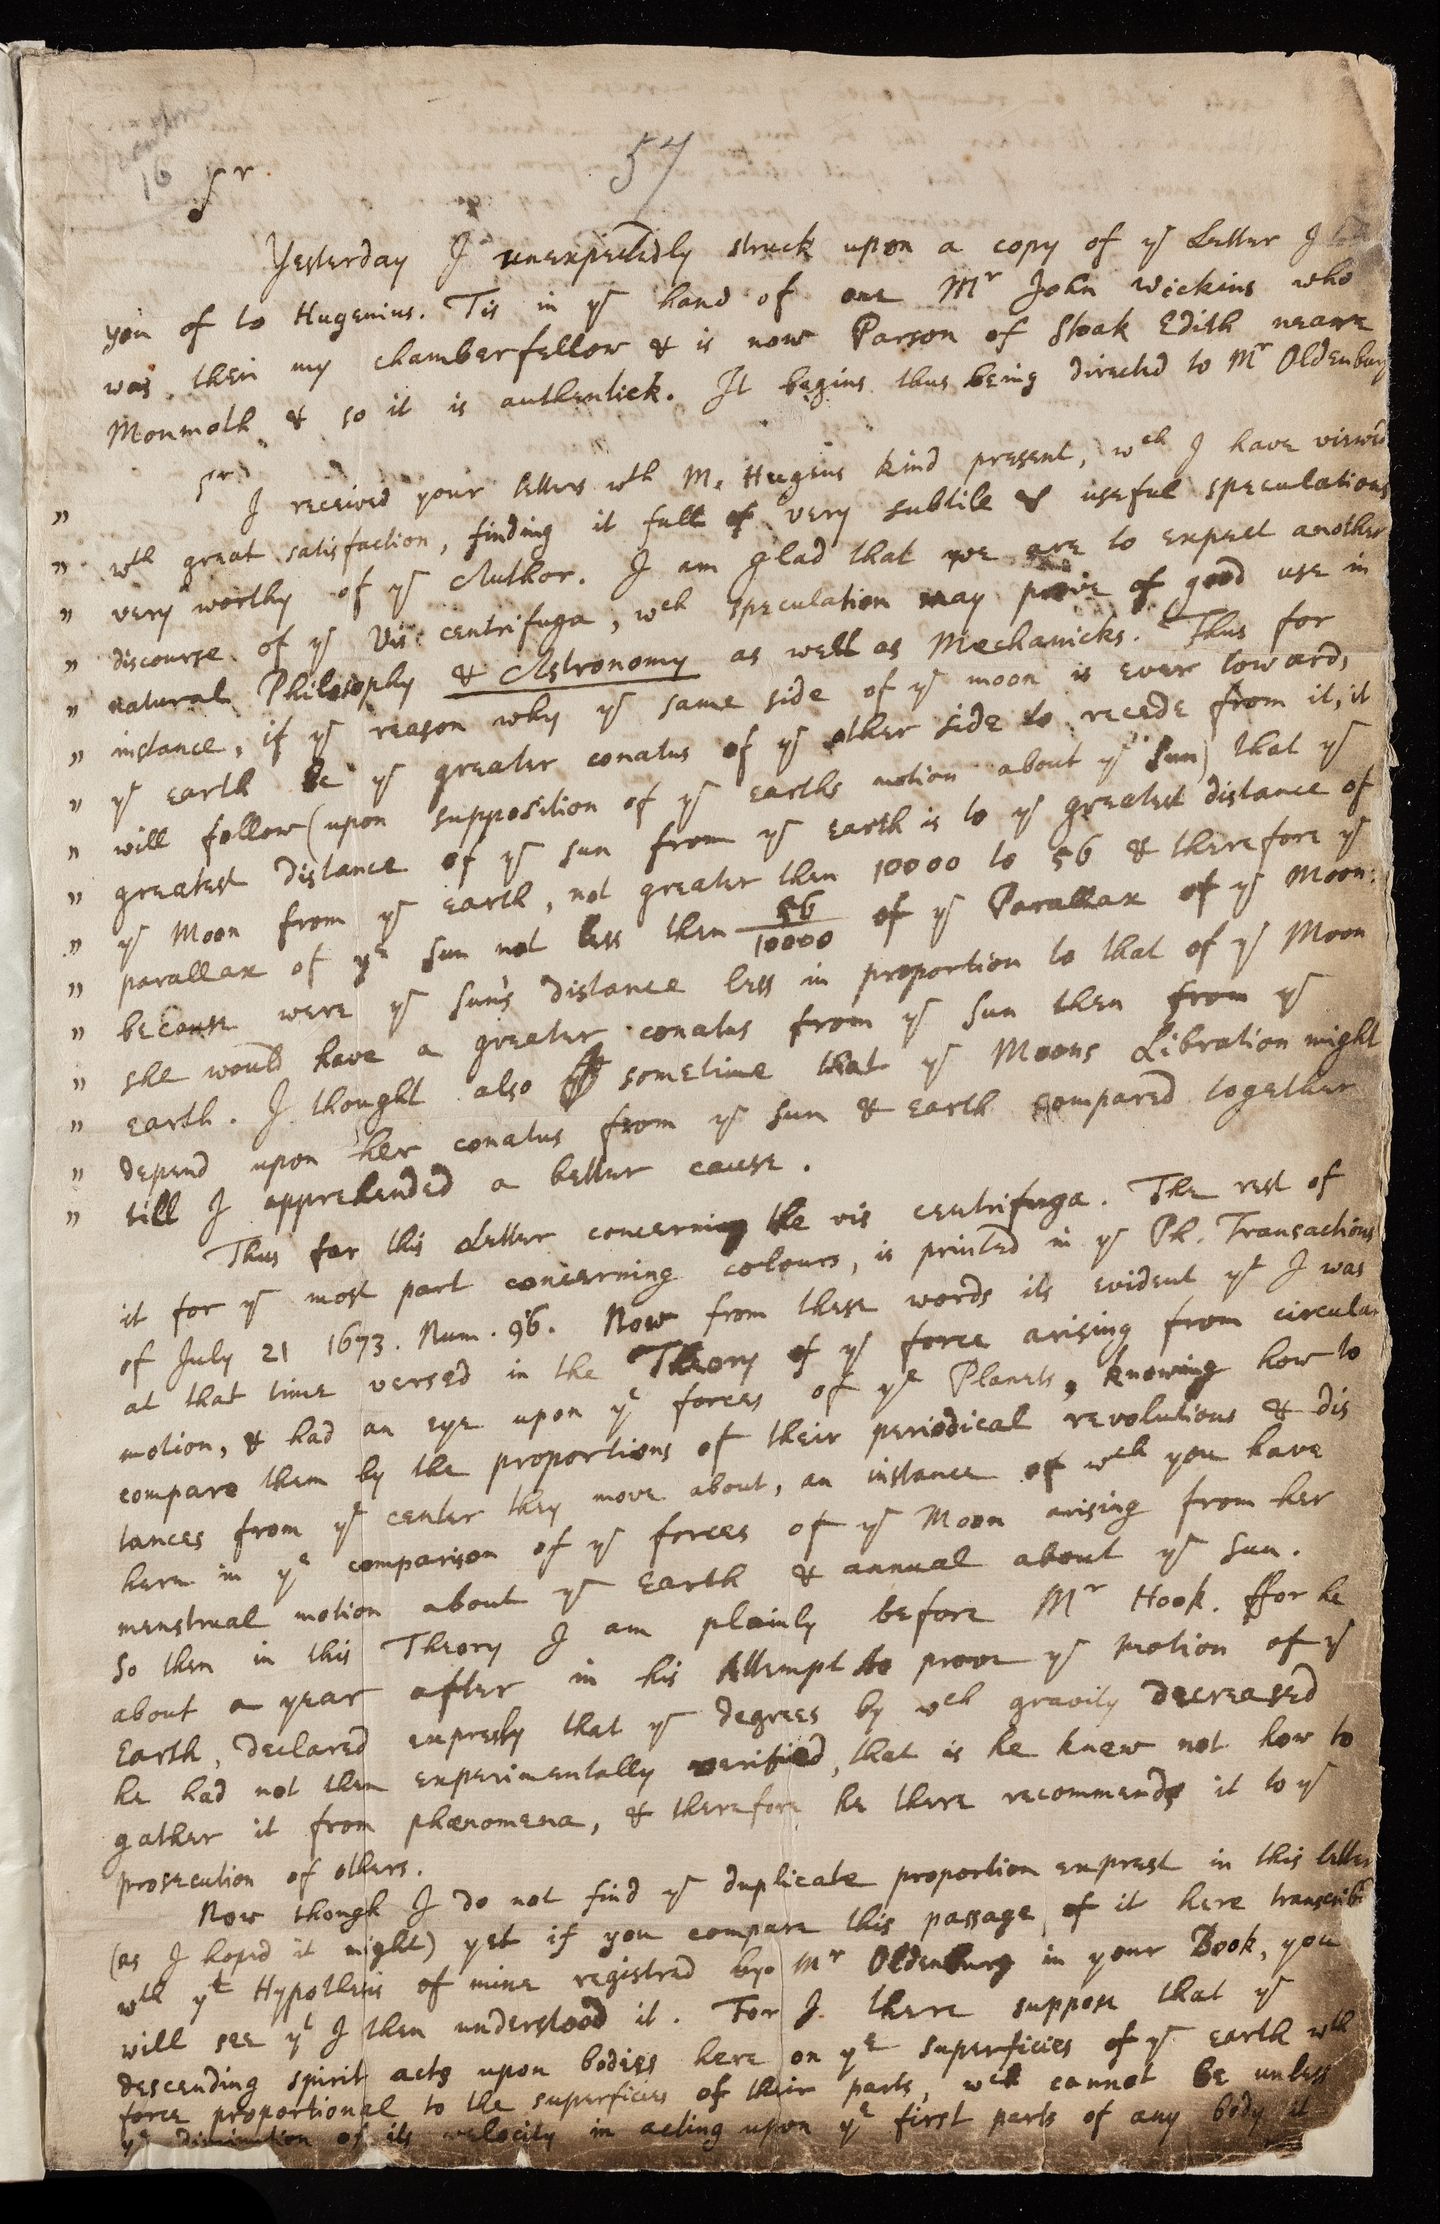 57
16
Sr
Yesterday I unexpectedly struck upon a copy of ye Letter I
you of to Hugenius. Tis in ye hand of one Mr John Wickins who
was then my chamberfellow & is now Parson of Stoak Edith neare
Monmoth & so it is authentick. It begins thus being directed to Mr Oldenburg
Sr
" I received your letters wth M. Hugens kind present, wch I have viewed
" wth great satisfaction, finding it full of very subtile & useful speculations
" very worthy of ye Author. I am glad that we are to expect another
" discourse of ye Vis centrifuga, wch speculation may prove of good use in
" natural Philosophy & Astronomy as well as Mechanicks. Thus for
" instance, if ye reason why ye same side of ye moon is ever towards
" ye earth be ye greater conatus of ye other side to recede from it, it
" will follow (upon supposition of ye earths motion about ye Sun) that ye
" greatest distance of ye sun from ye earth is to ye greatest distance of
" ye Moon from ye earth, not greater then 10000 to 56 & therefore ye
" parallax of ye Sun not less then 56/10000 of ye Parallax of ye Moon:
" because were ye Sun's distance less in proportion to that of ye Moon
" she would have a greater conatus from ye Sun then from ye
" earth. I thought also sometime that ye Moons Libration might
" depend upon her conatus from ye Sun & Earth compared together
" till I apprehended a better cause.
Thus far this Letter concerning the vis centrifuga. The rest of
it for ye most part concerning colours, is printed in ye Ph. Transactions
of July 21 1673. Num. 96. Now from these words its evident yt I was
at that time versed in the Theory of ye force arising from circular
motion, & had an eye upon ye forces of ye Planets, knowing how to
compare them by the proportions of their periodical revolutions & dis
tances from ye center they move about, an instance of wch you have
here in ye comparison of ye forces of ye Moon arising from her
menstrual motion about ye Earth & annual about ye Sun.
So then in this Theory I am plainly before Mr Hook. ffor he
about a year after in his Attempt to prove ye motion of ye
Earth, declared expresly that ye degrees by wch gravity decreased
he had not then experimentally verified, that is he knew not how to
gather it from phænomena, & therefore he there recommends it to ye
prosecution of others.
Now though I do not find ye duplicate proportion exprest in this letter
(as I hoped it might) yet if you compare this passage of it here transcribed
wth yt Hypothesis of mine registred by Mr Oldenburg in your Book, you
will see yt I then understood it. For I there suppose that ye
descending spirit acts upon bodies here on ye superficies of ye earth wth
force proportional to the superficies of their parts, wch cannot be unless
ye diminution of its velocity in acting upon ye first parts of any body it